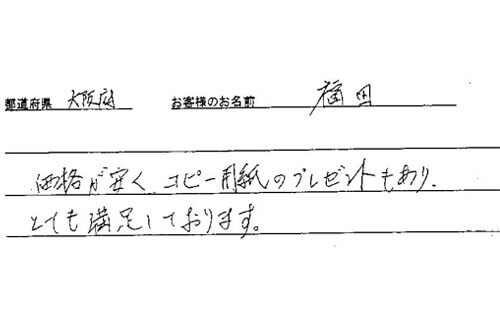 都道府県 大阪府 お客様のお名前 福田
価格が安く、コピー用紙のプレゼントもあり、
とても満足しております。